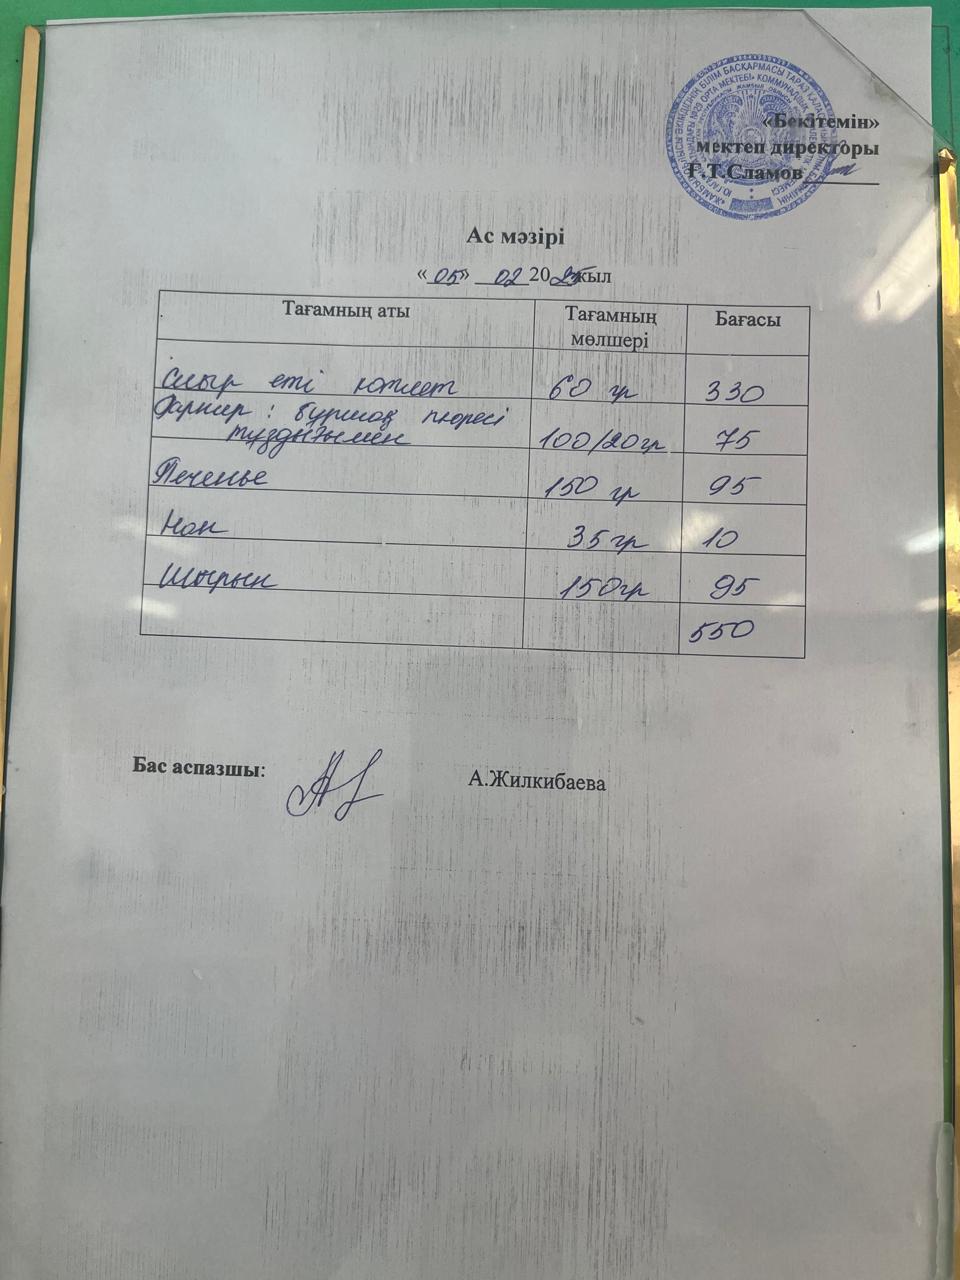 «Бекітемін»
мектеп директоры
Ғ.Т.Сламов
Ас мәзірі
«05» 02 2025 жыл
Тағамның аты Тағамның мөлшері Бағасы
Сиыр еті котлет 60 гр 330
Гарнир : бұршақ пюресі
тұздығымен 100/20гр 75
Печенье 150 гр 95
Нан 35 гр 10
Шырын 150гр 95
550
Бас аспазшы: А.Жилкибаева